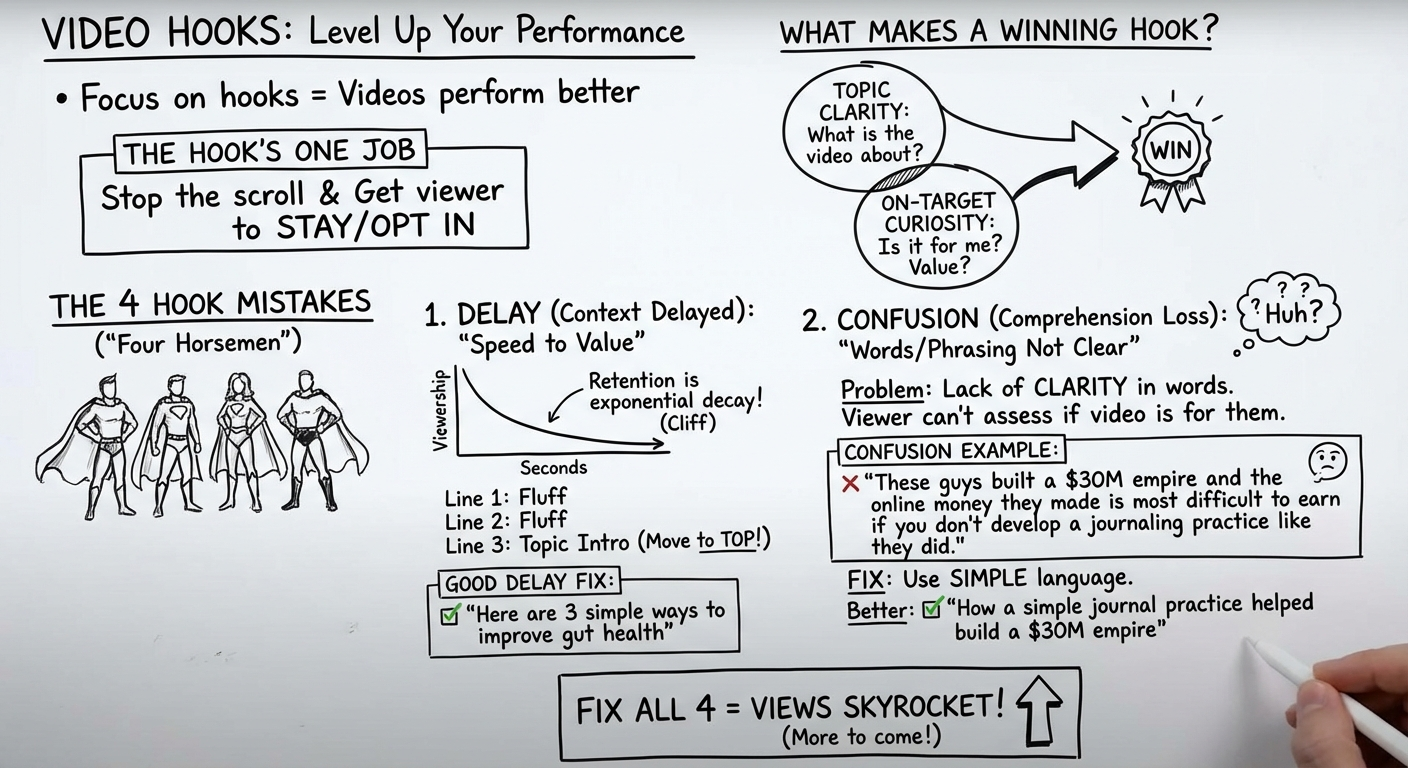 VIDEO HOOKS: Level Up Your Performance
• Focus on hooks = Videos perform better
THE HOOK'S ONE JOB
Stop the scroll & Get viewer
to STAY/OPT IN
WHAT MAKES A WINNING HOOK?
TOPIC
CLARITY:
What is the
video about?
ON-TARGET
CURIOSITY:
Is it for me?
Value?
WIN
THE 4 HOOK MISTAKES
("Four Horsemen")
1. DELAY (Context Delayed):
"Speed to Value"
Viewership
Retention is
exponential decay!
(Cliff)
Seconds
Line 1: Fluff
Line 2: Fluff
Line 3: Topic Intro (Move to TOP!)
GOOD DELAY FIX:
"Here are 3 simple ways to
improve gut health"
2. CONFUSION (Comprehension Loss):
"Words/Phrasing Not Clear"
? ?
? Huh?
Problem: Lack of CLARITY in words.
Viewer can't assess if video is for them.
CONFUSION EXAMPLE:
"These guys built a $30M empire and the
online money they made is most difficult to earn
if you don't develop a journaling practice like
they did."
FIX: Use SIMPLE language.
Better: "How a simple journal practice helped
build a $30M empire"
FIX ALL 4 = VIEWS SKYROCKET!
(More to come!)